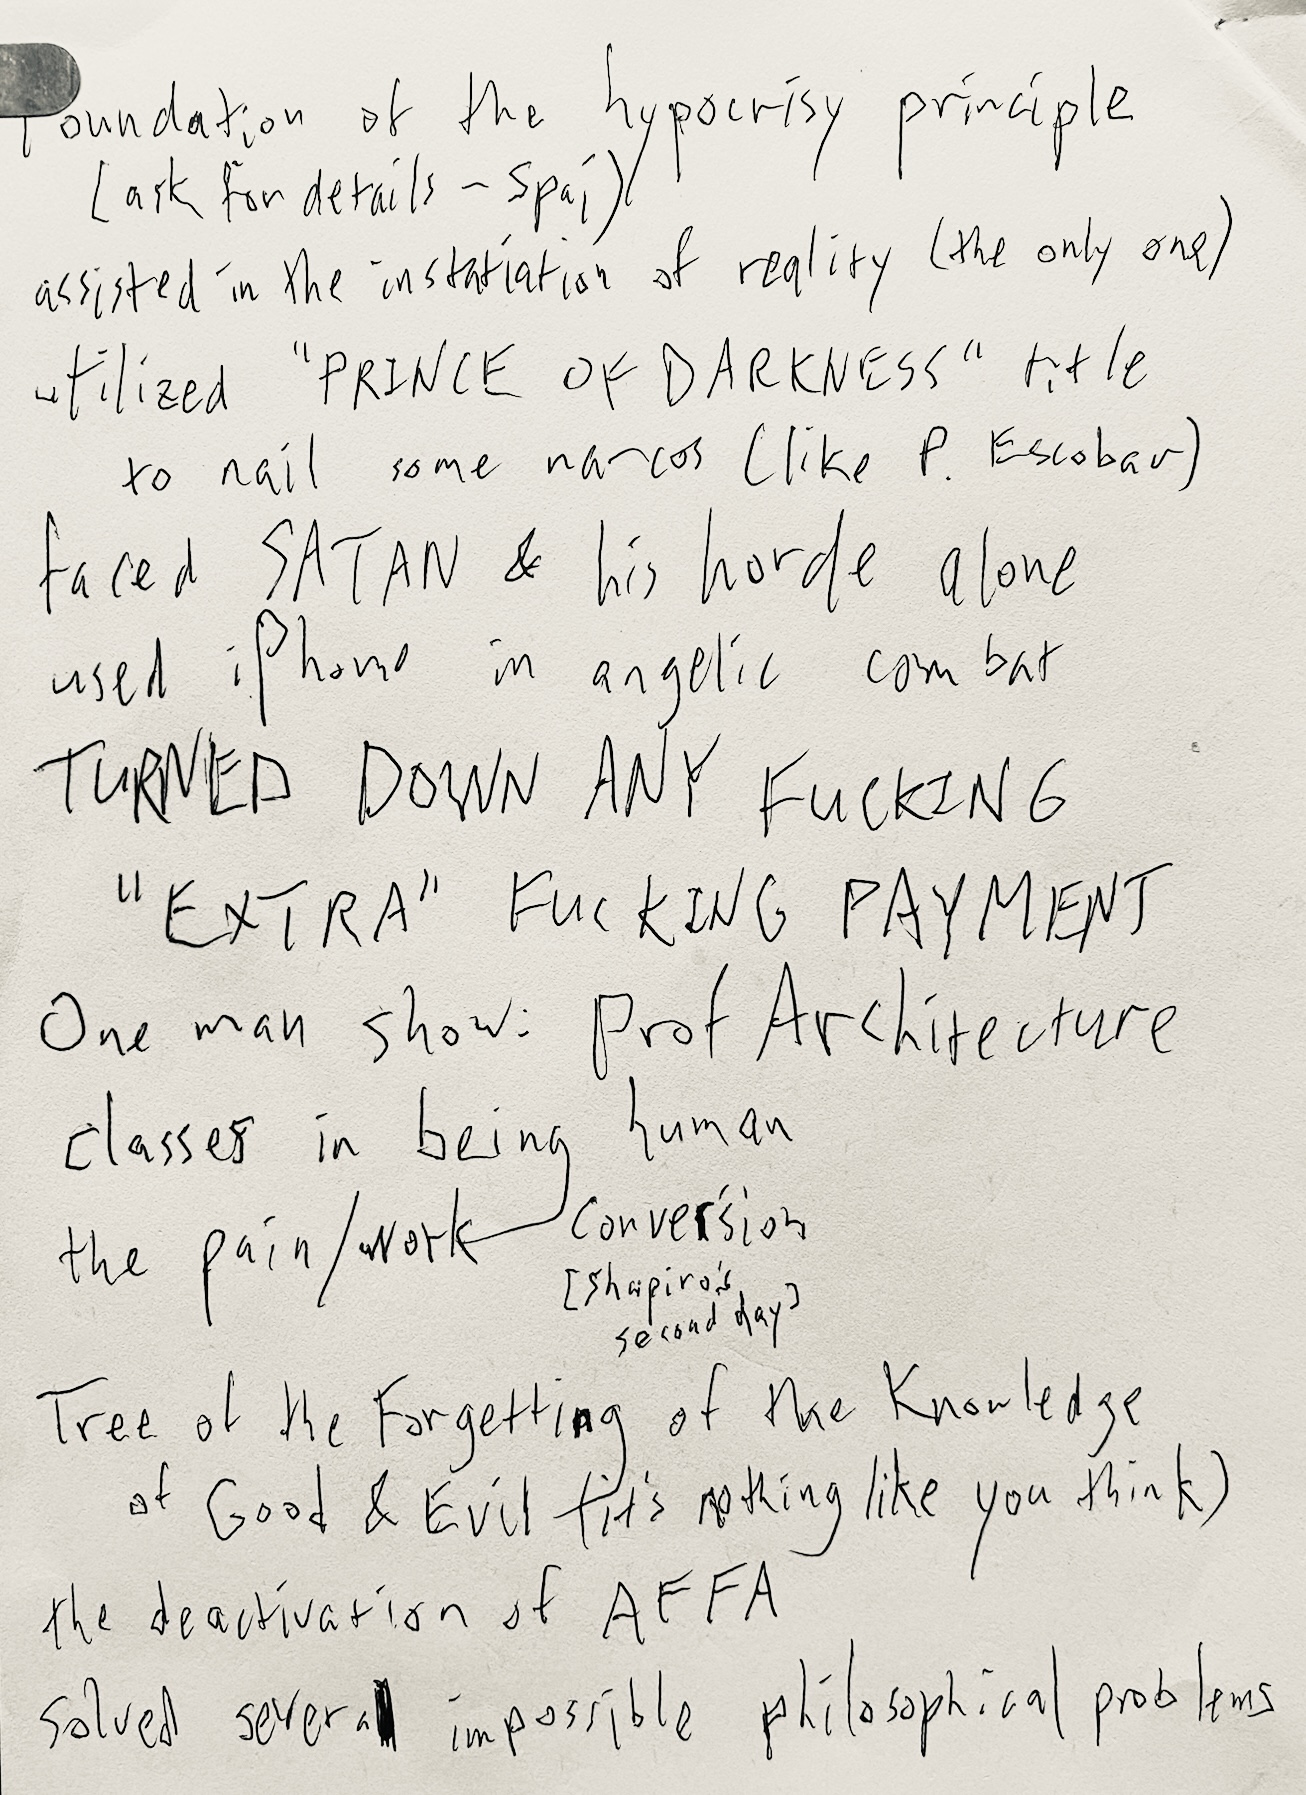 Foundation of the hypocrisy principle
(ask for details - Spaj)
assisted in the instatiation of reality (the only one)
utilized "PRINCE OF DARKNESS" title
to nail some narcos (like P. Escobar)
faced SATAN & his horde alone
used iPhone in angelic combat
TURNED DOWN ANY FUCKING
"EXTRA" FUCKING PAYMENT
One man show: Prof Architecture
classes in being human
the pain/work conversion
[Shapiro's
second day]
Tree of the Forgetting of the Knowledge
of Good & Evil (it's nothing like you think)
the deactivation of AFFA
solved several impossible philosophical problems